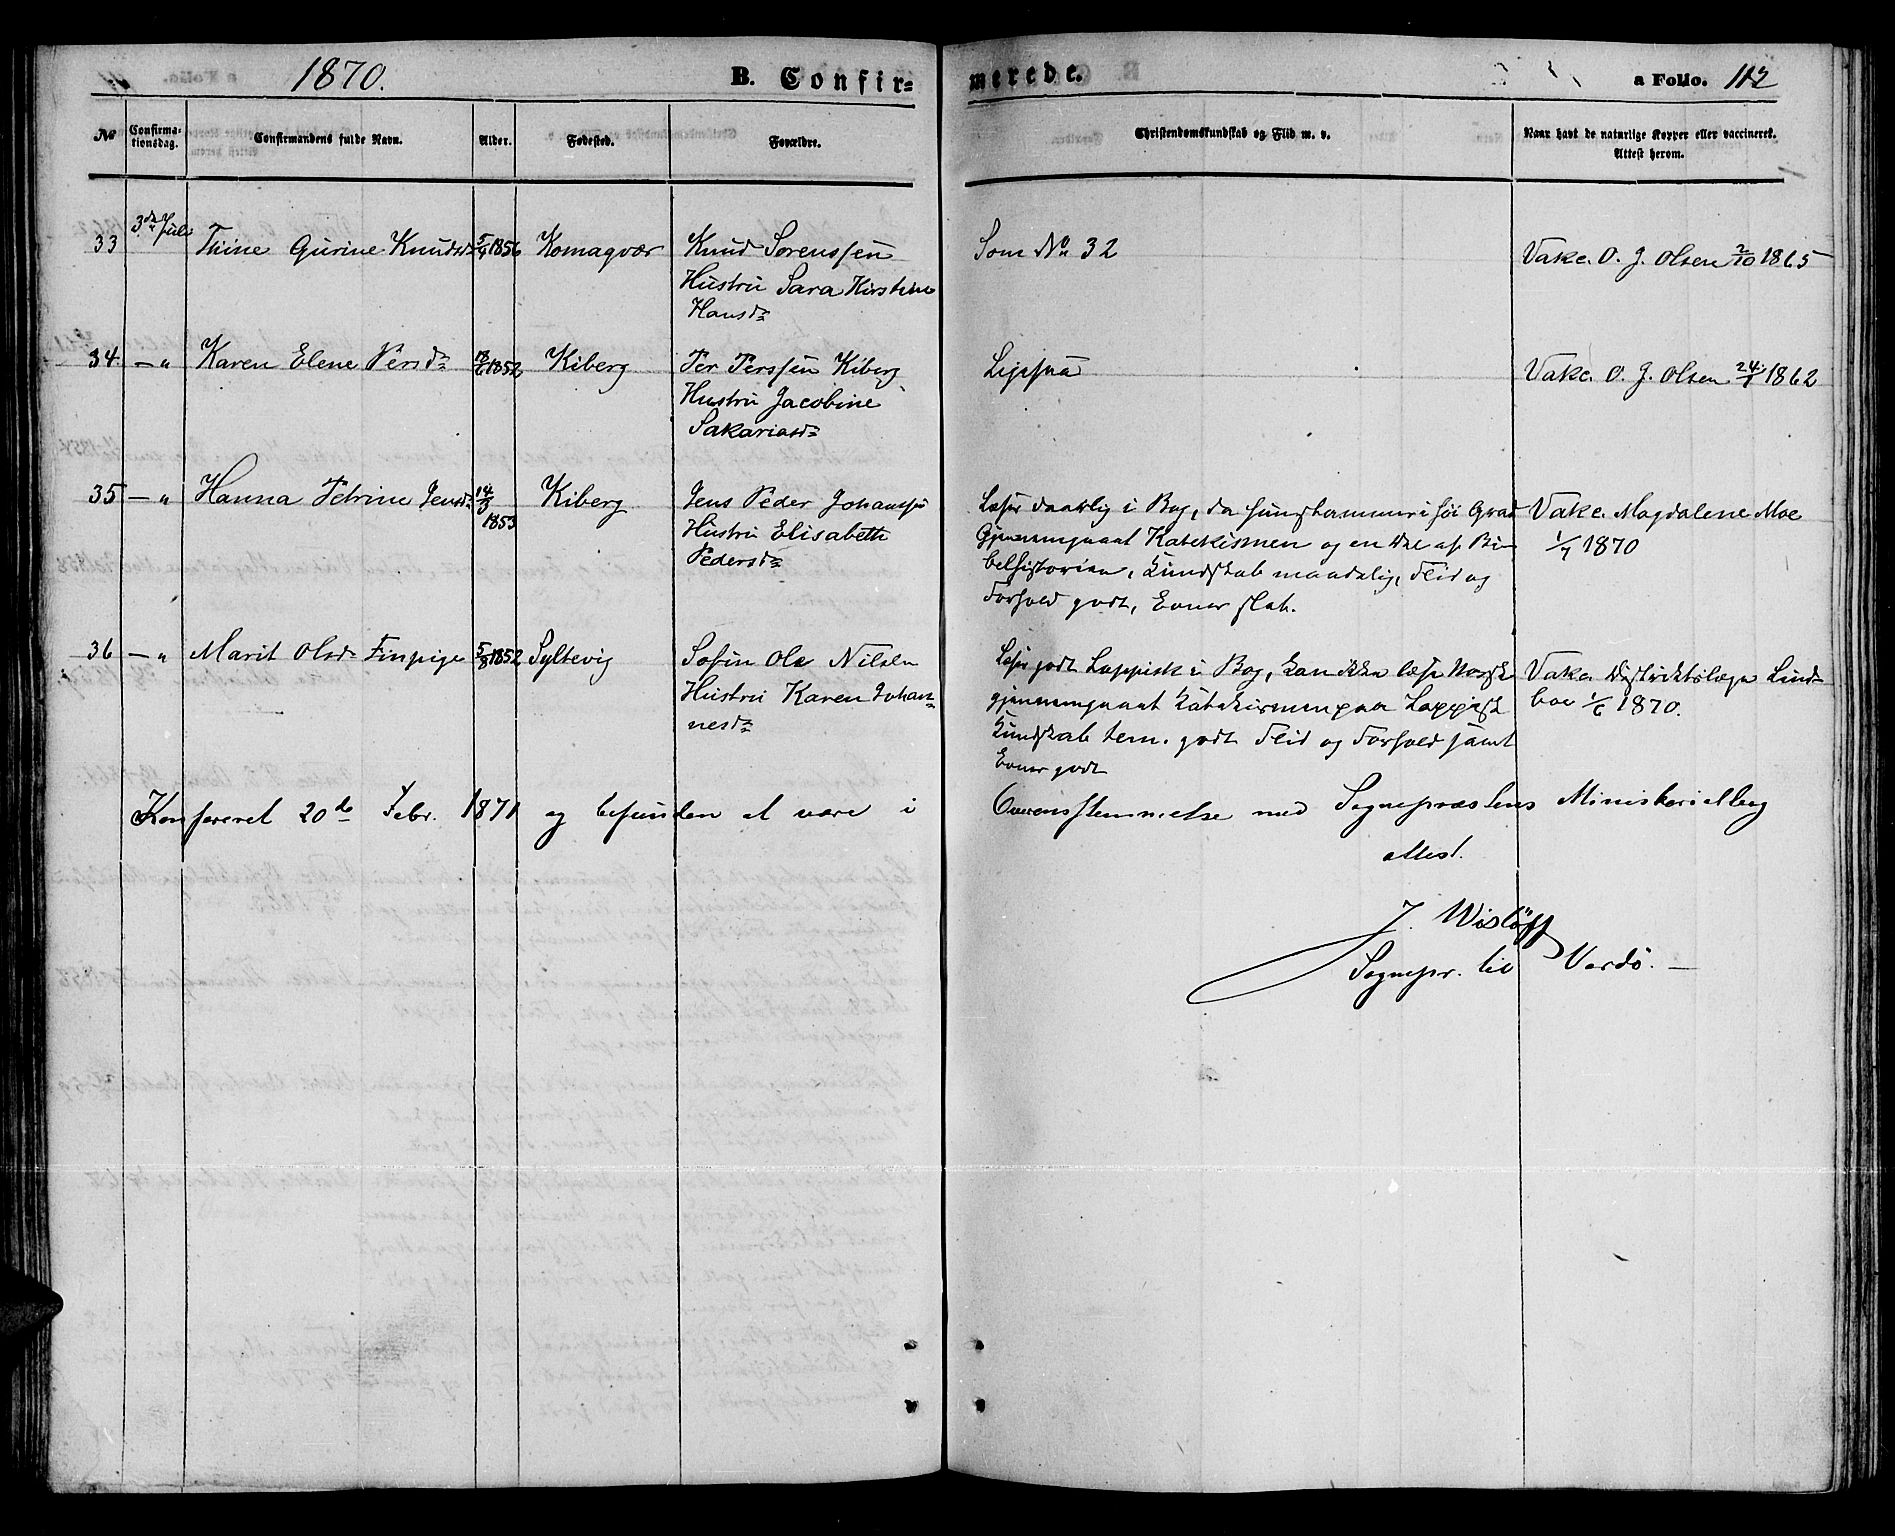 1870.
B. Confir=
merede.
a Folio. 112
No
Confirma-
tionsdag.
Confirmandens fulde Navn.
Alder.
Fødested.
Forældre.
Christendomskundskab og Flid m. v.
Naar havt de naturlige Kopper eller vaccineret.
Attest herom.
33 3de Juli Trine Gurine Knudsd. 5/4 1856 Komagvær Knud Sorenssen Som No 32 Vakc. O. J. Olsen 2/10 1865
Hustru Sara Kirstine
Hansd.
34. — „ Karen Elene Persd. 1852 Kiberg Per Perssen Kiberg Ligesaa Vakc. O. J. Olsen 24/1 1862
Hustru Jacobine
Sakariasd.
35 — „ Hanna Petrine Jensd. 14/3 Kiberg Jens Peder Johanssen Læser daarlig i Bog, da hun stammer i høi Grad Vakc. Magdalene Moe
1853 Hustru Elisabeth Gjennemgaaet Katekismen og en Del af Bi- 1/7 1870
Pedersd. belhistorien, Kundskab maadelig, Flid og
Forhold godt, Evner slet.
36 — „ Marit Olsd. Finpige 5/8 1852 Syltevig Søfin Ole Nilsen Læser godt Lappisk i Bog, kan ikke læse Norsk Vakc. Distriktslæge Lind-
Hustru Karen Johan- gjennemgaaet Katekismen paa Lappisk boe 1/6 1870.
nesd. Kundskab tem. godt Flid og Forhold samt
Evner godt
Konfereret 20de Febr. 1871 og befunden at være i Overensstemmelse med Sognepræstens Ministerialbog
attest.
J. Wisløff
Sognepr. til Vardö. —